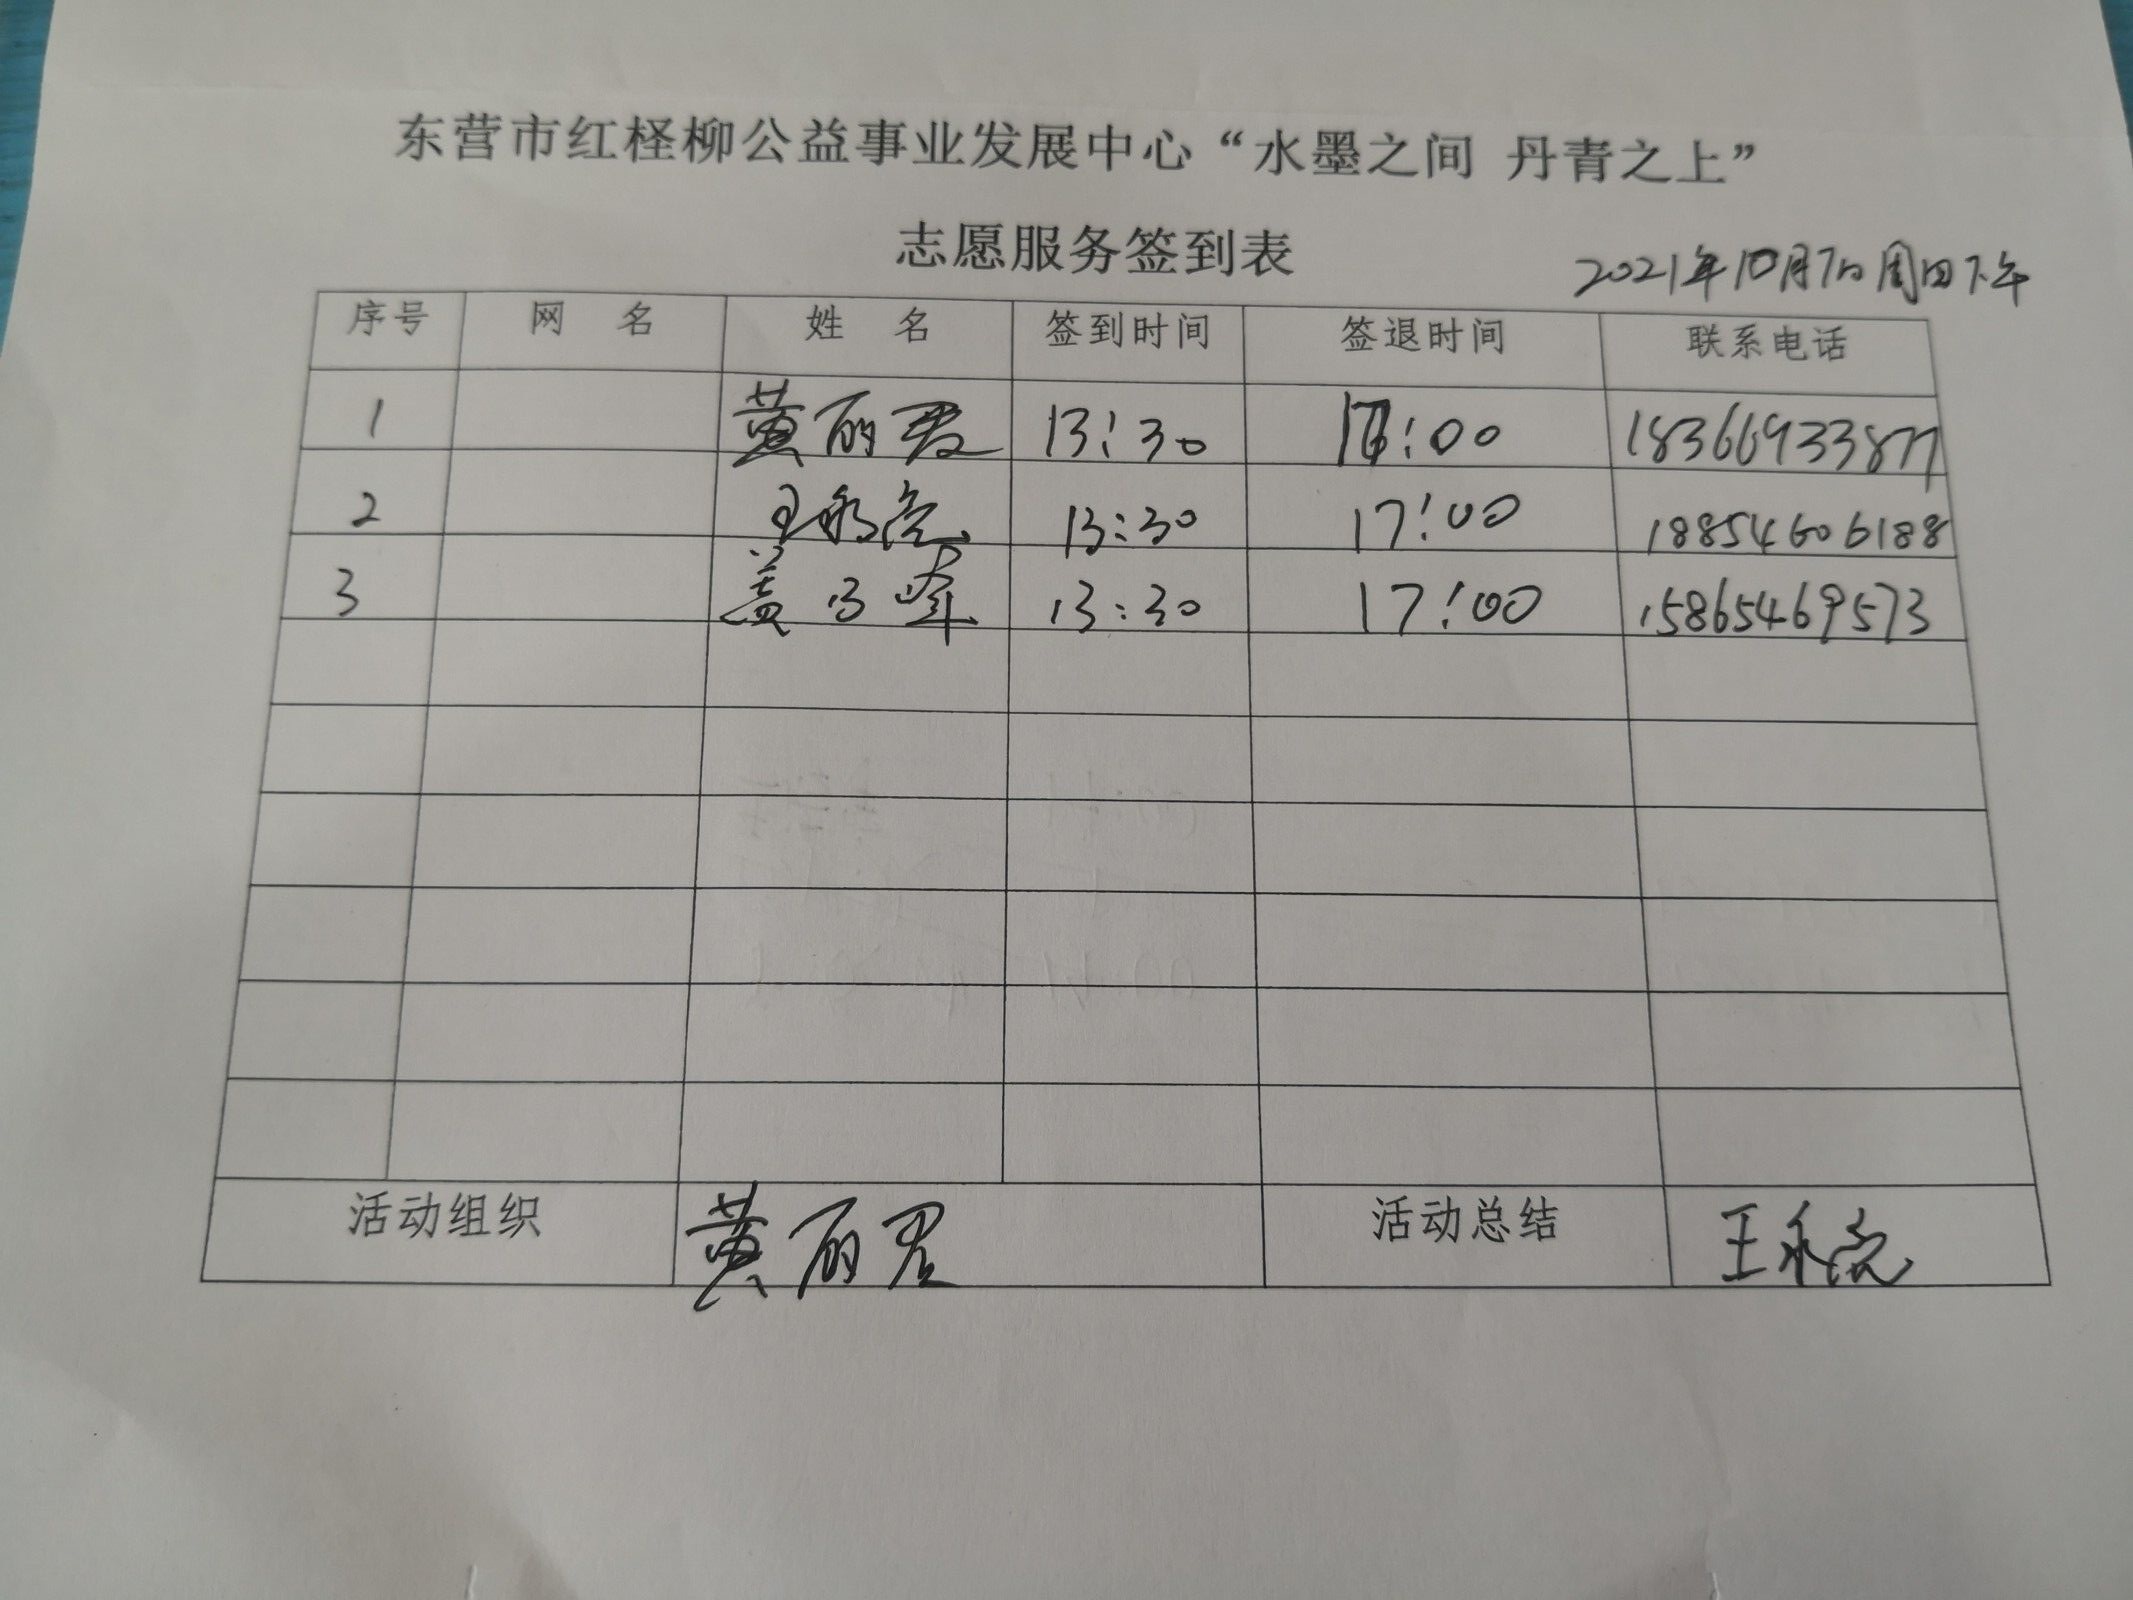 东营市红柽柳公益事业发展中心“水墨之间 丹青之上”
志愿服务签到表
2021年10月7日周四下午
序号 网 名 姓 名 签到时间 签退时间 联系电话
1 黄丽君 13:30 17:00 18366933877
2 王永亮 13:30 17:00 18854606188
3 盖 峰 13:30 17:00 15865469573
活动组织 黄丽君 活动总结 王永亮